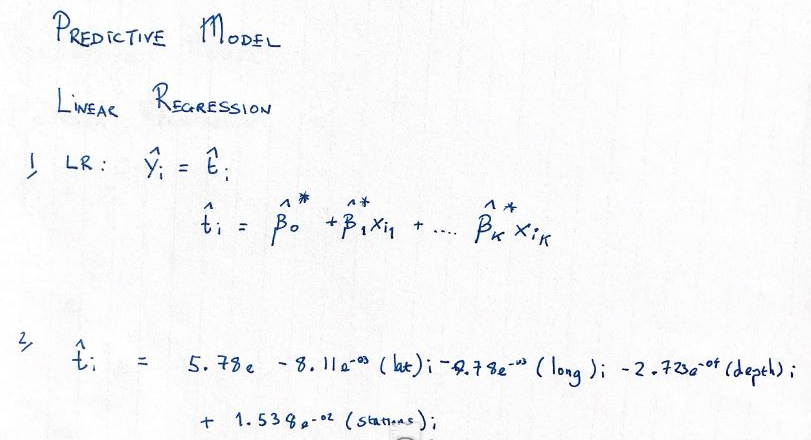 PREDICTIVE MODEL
LINEAR REGRESSION
1, LR: ŷᵢ = t̂ᵢ
t̂ᵢ = β̂₀* + β̂₁* xᵢ₁ + .... β̂ₖ* xᵢₖ
2, t̂ᵢ = 5.78e - 8.11e⁻⁰³ (lat)ᵢ - .78e⁻⁰³ (long)ᵢ - 2.723e⁻⁰⁴ (depth)ᵢ
+ 1.538e⁻⁰² (stations)ᵢ